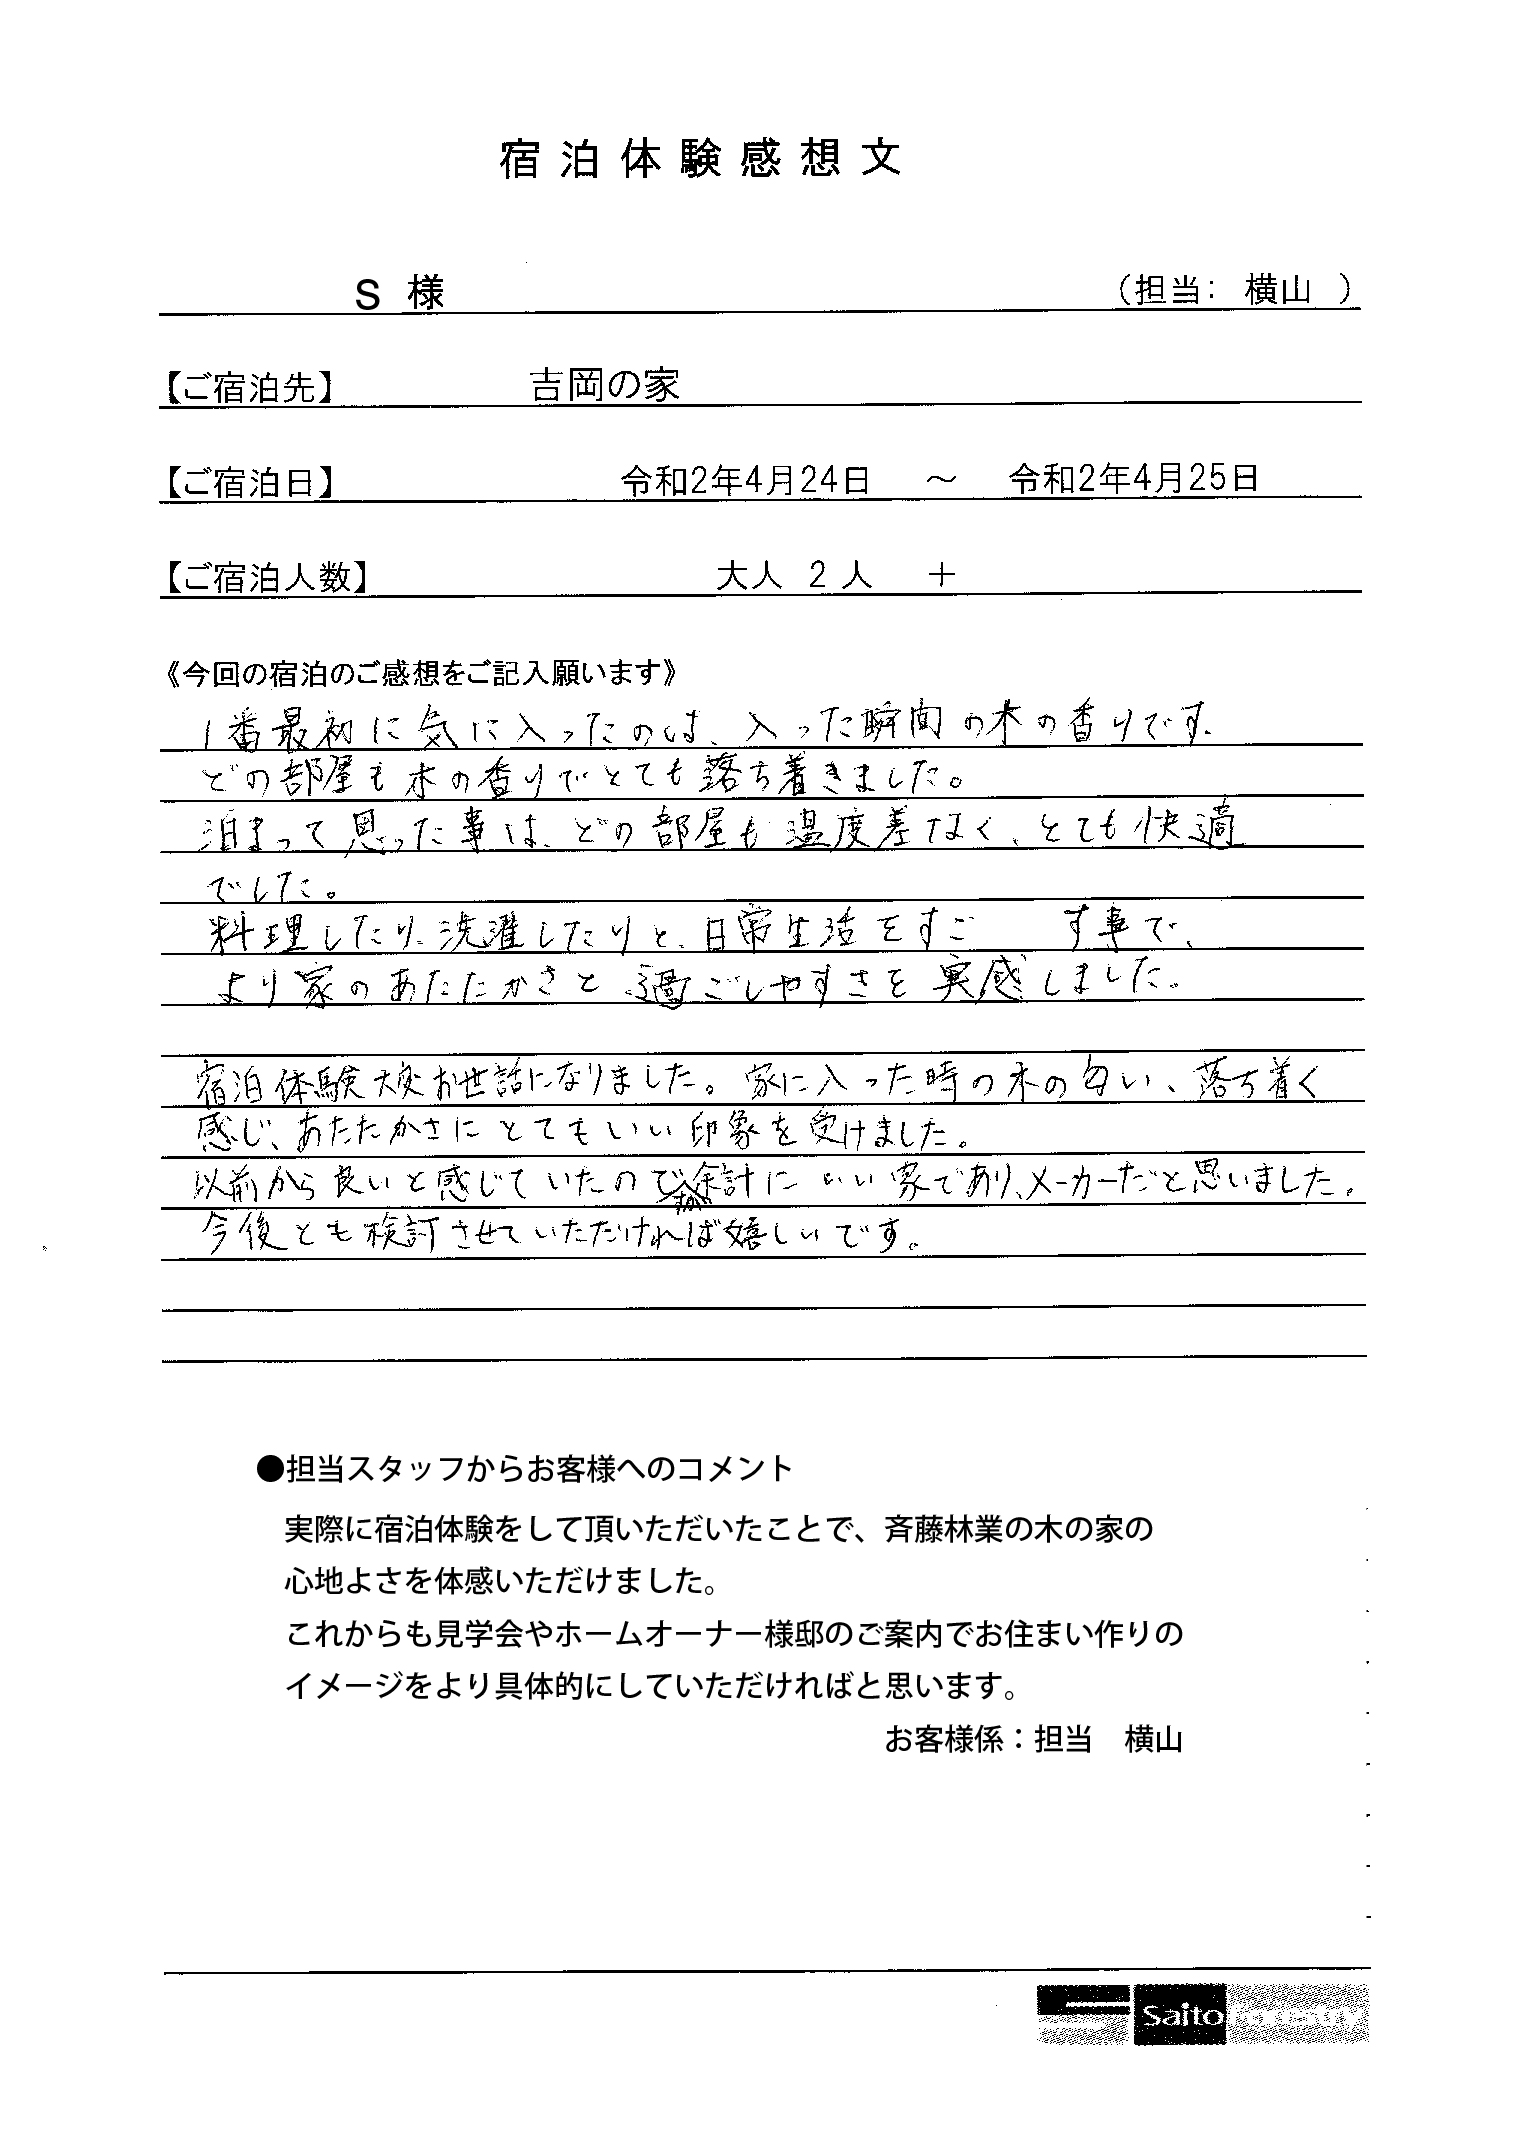 宿泊体験感想文
S 様 （担当： 横山 ）
【ご宿泊先】 吉岡の家
【ご宿泊日】 令和2年4月24日 ～ 令和2年4月25日
【ご宿泊人数】 大人 2 人 ＋
《今回の宿泊のご感想をご記入願います》
1番最初に気に入ったのは、入った瞬間の木の香りです.
どの部屋も木の香りでとても落ち着きました。
泊まって思った事は、どの部屋も温度差なく、とても快適
でした。
料理したり、洗濯したりと、日常生活をすご す事で、
より家のあたたかさと過ごしやすさを実感しました。
宿泊体験大変お世話になりました。家に入った時の木の匂い、落ち着く
感じ、あたたかさにとてもいい印象を受けました。
以前から良いと感じていたので余計にいい家であり、メーカーだと思いました。
今後とも検討させていただければ嬉しいです。
●担当スタッフからお客様へのコメント
実際に宿泊体験をして頂いただいたことで、斉藤林業の木の家の
心地よさを体感いただけました。
これからも見学会やホームオーナー様邸のご案内でお住まい作りの
イメージをより具体的にしていただければと思います。
お客様係：担当 横山
Saito Forestry